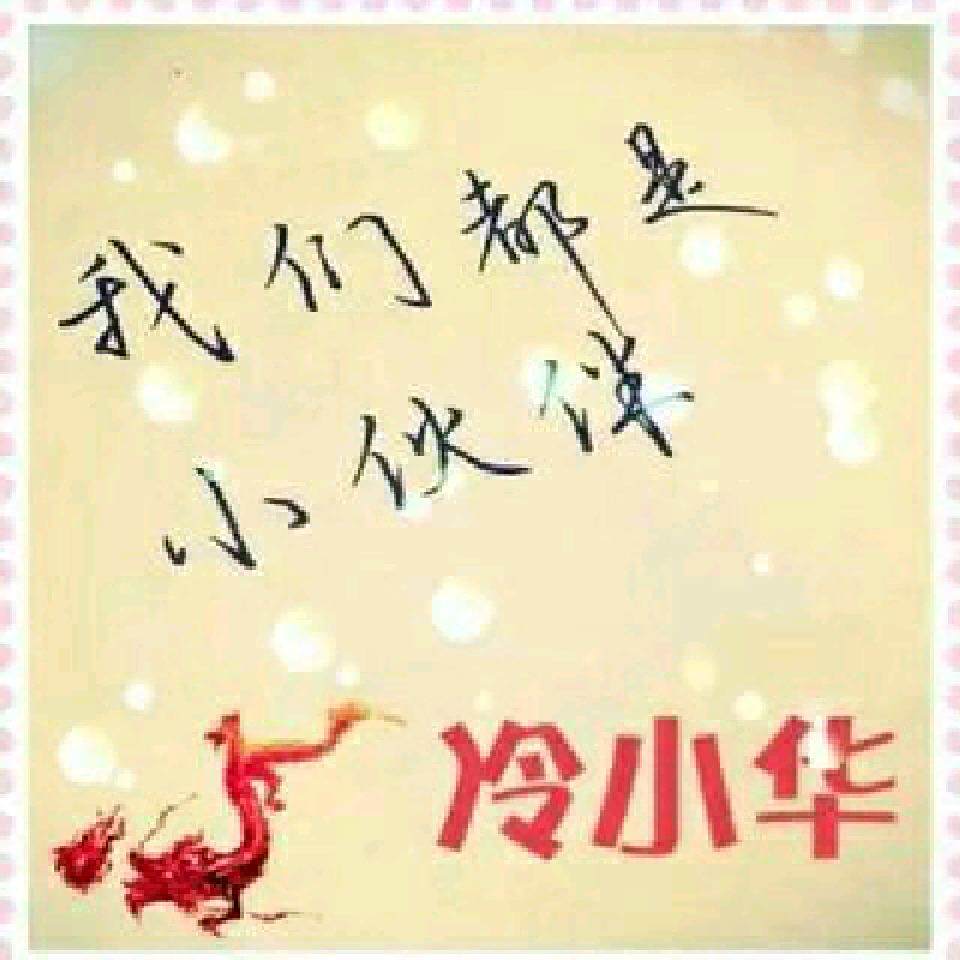 我们都是
小伙伴
冷小华